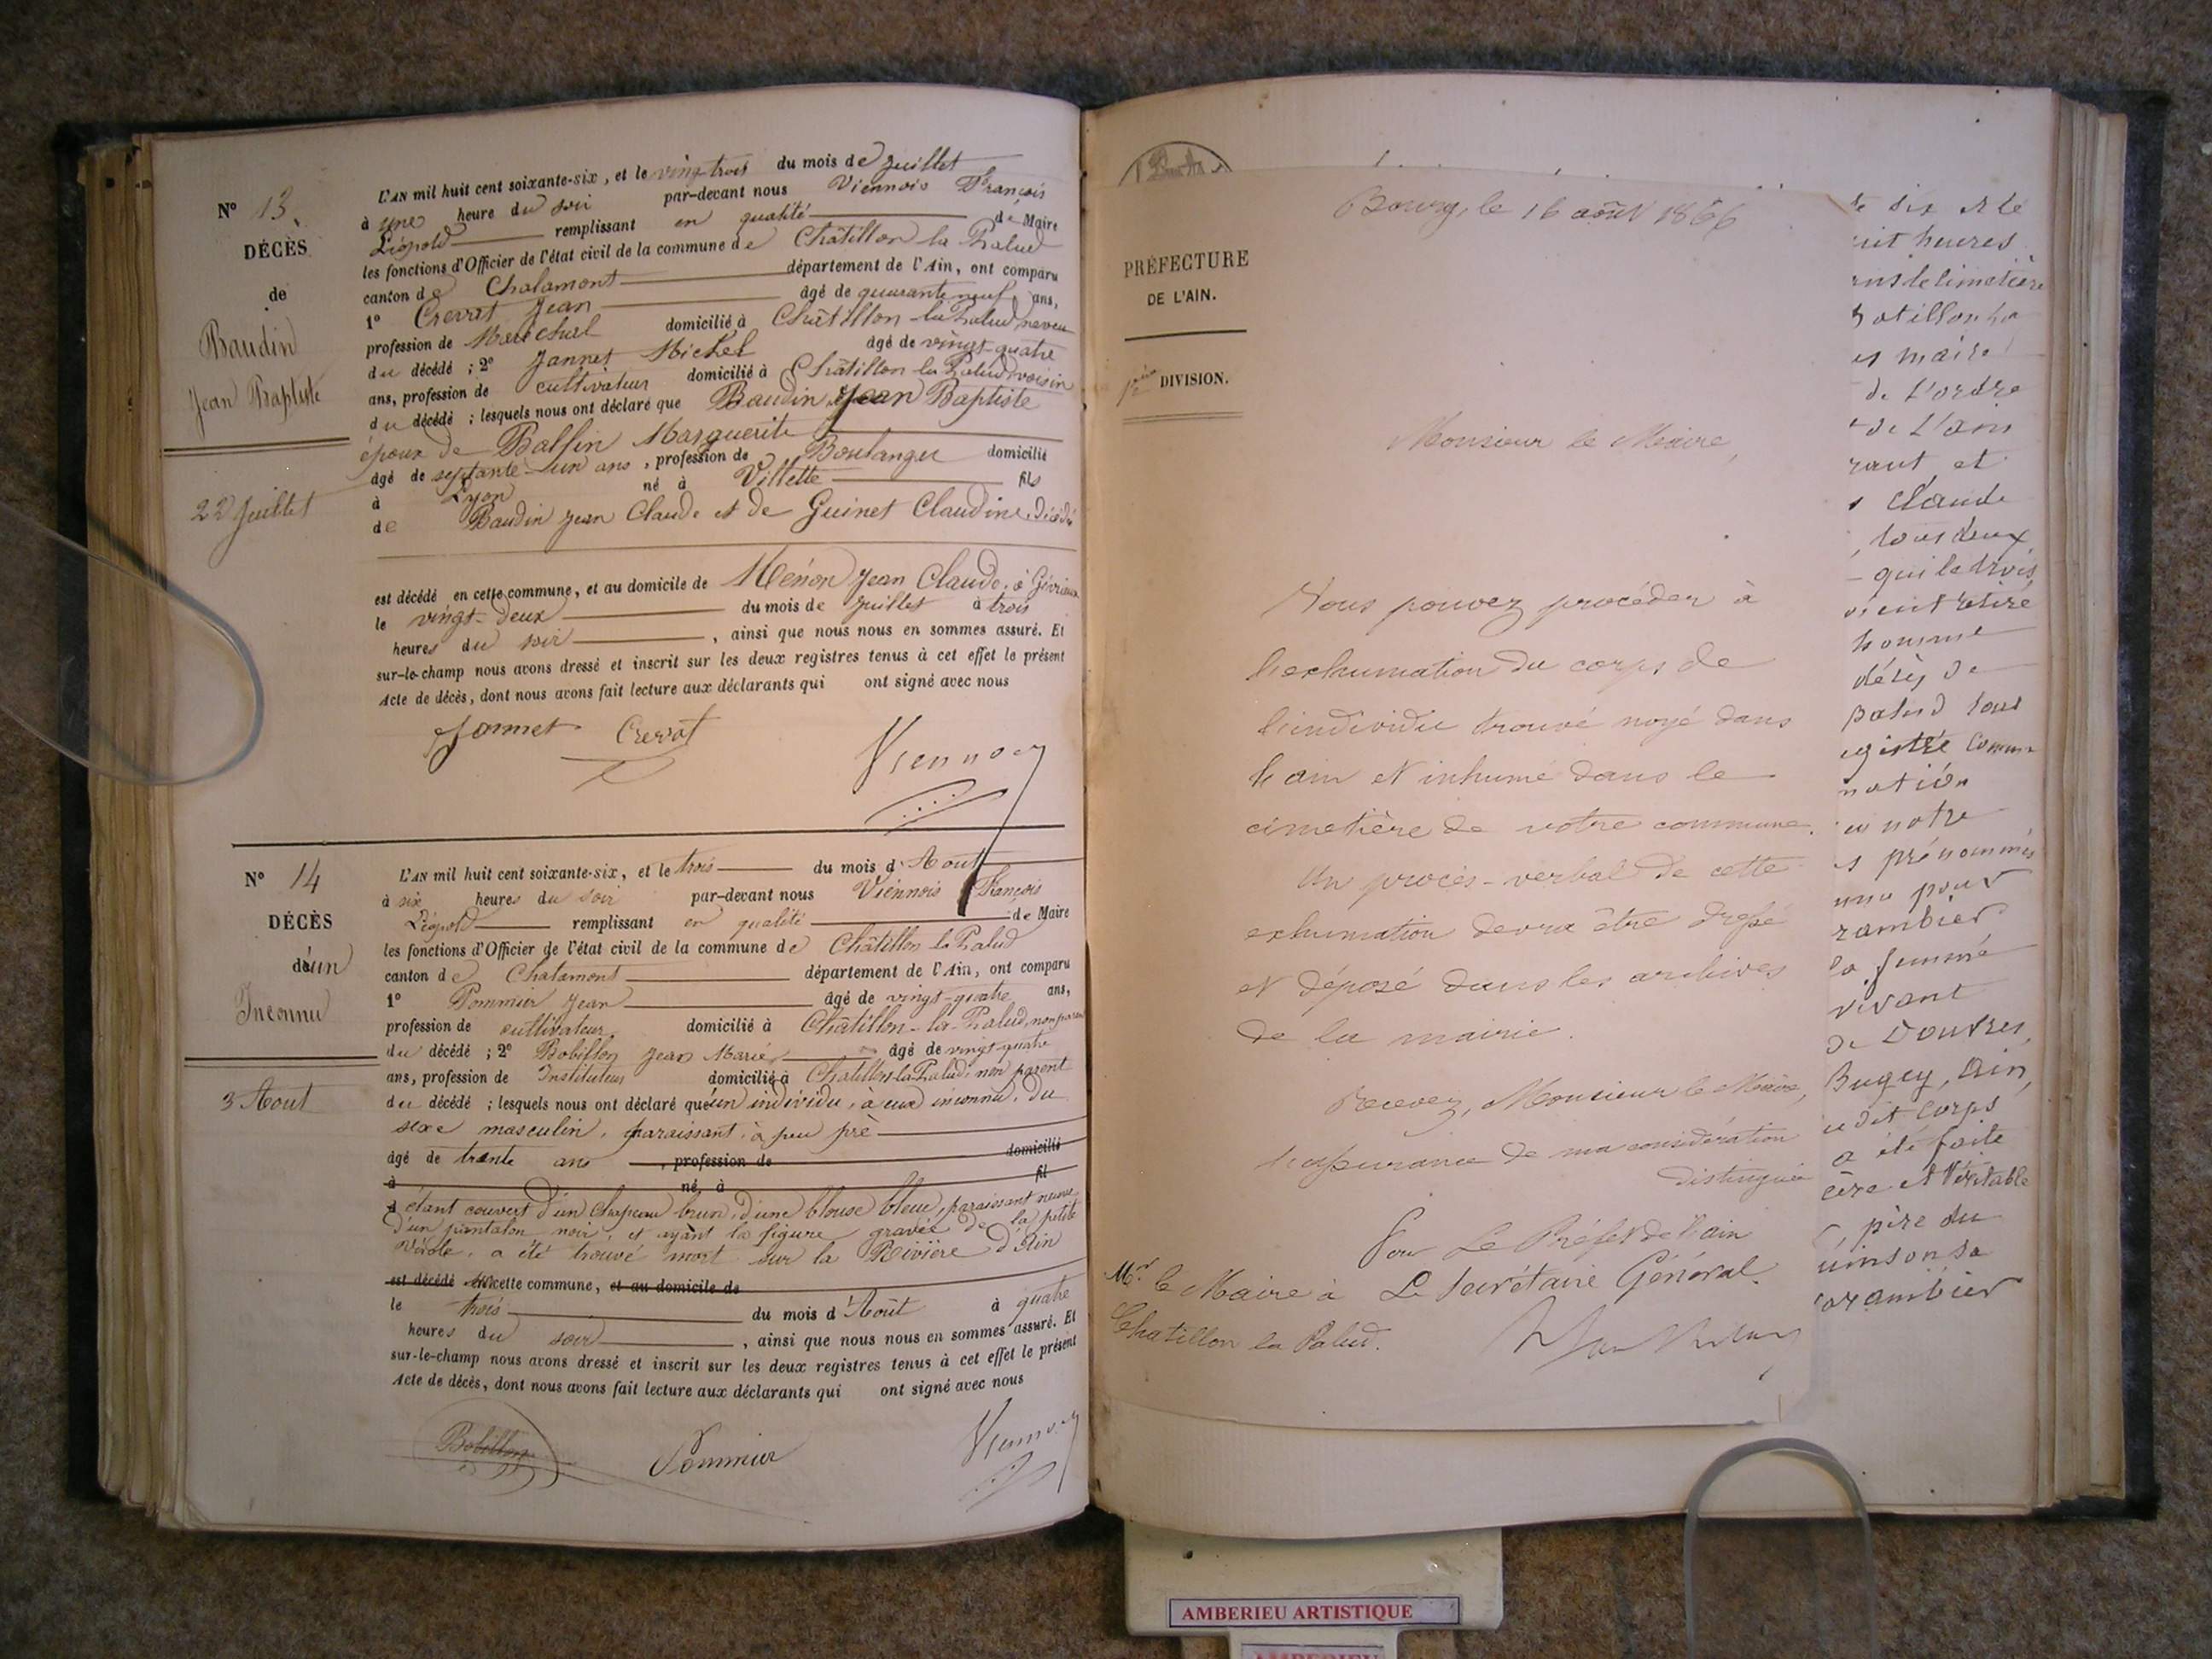 N° 13.
DÉCÈS
de
Baudin
Jean Baptiste
22 Juillet
L'AN mil huit cent soixante-six, et le vingt trois du mois de Juillet
à une heure du soir par-devant nous Viennois François
Léopold remplissant en qualité de Maire
les fonctions d'Officier de l'état civil de la commune de Châtillon la Palud
canton de Chalamont département de l'Ain, ont comparu
1° Crevat Jean âgé de quarante neuf ans,
profession de Maréchal domicilié à Châtillon-la-Palud neveu
du décédé ; 2° Jannet Michel âgé de vingt-quatre
ans, profession de cultivateur domicilié à Châtillon la Palud voisin
du décédé ; lesquels nous ont déclaré que Baudin Jean Baptiste
époux de Ballin Marguerite
âgé de septante-un ans, profession de Boulanger domicilié
à Lyon né à Villette fils
de Baudin Jean Claude et de Guinet Claudine, décédé
est décédé en cette commune, et au domicile de Menon Jean Claude, à Gévrieux
le vingt-deux du mois de Juillet à trois
heures du soir, ainsi que nous nous en sommes assuré. Et
sur-le-champ nous avons dressé et inscrit sur les deux registres tenus à cet effet le présent
Acte de décès, dont nous avons fait lecture aux déclarants qui ont signé avec nous
Jannet Crevat Viennois
N° 14
DÉCÈS
d'un
Inconnu
3 Aout
L'AN mil huit cent soixante-six, et le trois du mois d'Aout
à six heures du soir par-devant nous Viennois François
Léopold remplissant en qualité de Maire
les fonctions d'Officier de l'état civil de la commune de Châtillon la Palud
canton de Chalamont département de l'Ain, ont comparu
1° Pommier Jean âgé de vingt-quatre ans,
profession de cultivateur domicilié à Châtillon-la-Palud, non parent
du décédé ; 2° Bobillon Jean Marie âgé de vingt-quatre
ans, profession de Instituteur domicilié à Châtillon-la-Palud, non parent
du décédé ; lesquels nous ont déclaré qu'un individu, à eux inconnu, du
sexe masculin, paraissant, à peu prè
âgé de trente ans, profession de domicilié
à né à fil
étant couvert d'un chapeau brun, d'une blouse bleue, paraissant neuve
d'un pantalon noir, et ayant la figure gravée de la petite
vérole, a été trouvé mort sur la Rivière d'Ain
est décédé en cette commune, et au domicile de
le trois du mois d'Août à quatre
heures du soir, ainsi que nous nous en sommes assuré. Et
sur-le-champ nous avons dressé et inscrit sur les deux registres tenus à cet effet le présent
Acte de décès, dont nous avons fait lecture aux déclarants qui ont signé avec nous
Bobillon Pommier Viennois
PRÉFECTURE
DE L'AIN.
DIVISION.
Bourg, le 16 août 1866
Monsieur le Maire,
Vous pouvez procéder à
l'exhumation du corps de
l'individu trouvé noyé dans
l'ain et inhumé dans le
cimetière de votre commune.
Un procès-verbal de cette
exhumation devra être dressé
et déposé dans les archives
de la mairie.
Recevez, Monsieur le Maire,
l'assurance de ma considération
distinguée
Pour Le Préfet de l'ain
Le Secrétaire Général.
Mr le Maire à
Chatillon la Palud.
heures
maire
de l'ordre
de l'ain
et
Claude
tous deux
qui le trois
homme
décès de
Palud sous
notre
prénommés
pour
rambier
femme
vivant
de Douvres,
Bugey, Ain,
dit corps
a été faite
et Véritable
père du
rambier
AMBERIEU ARTISTIQUE
AMBERIEU